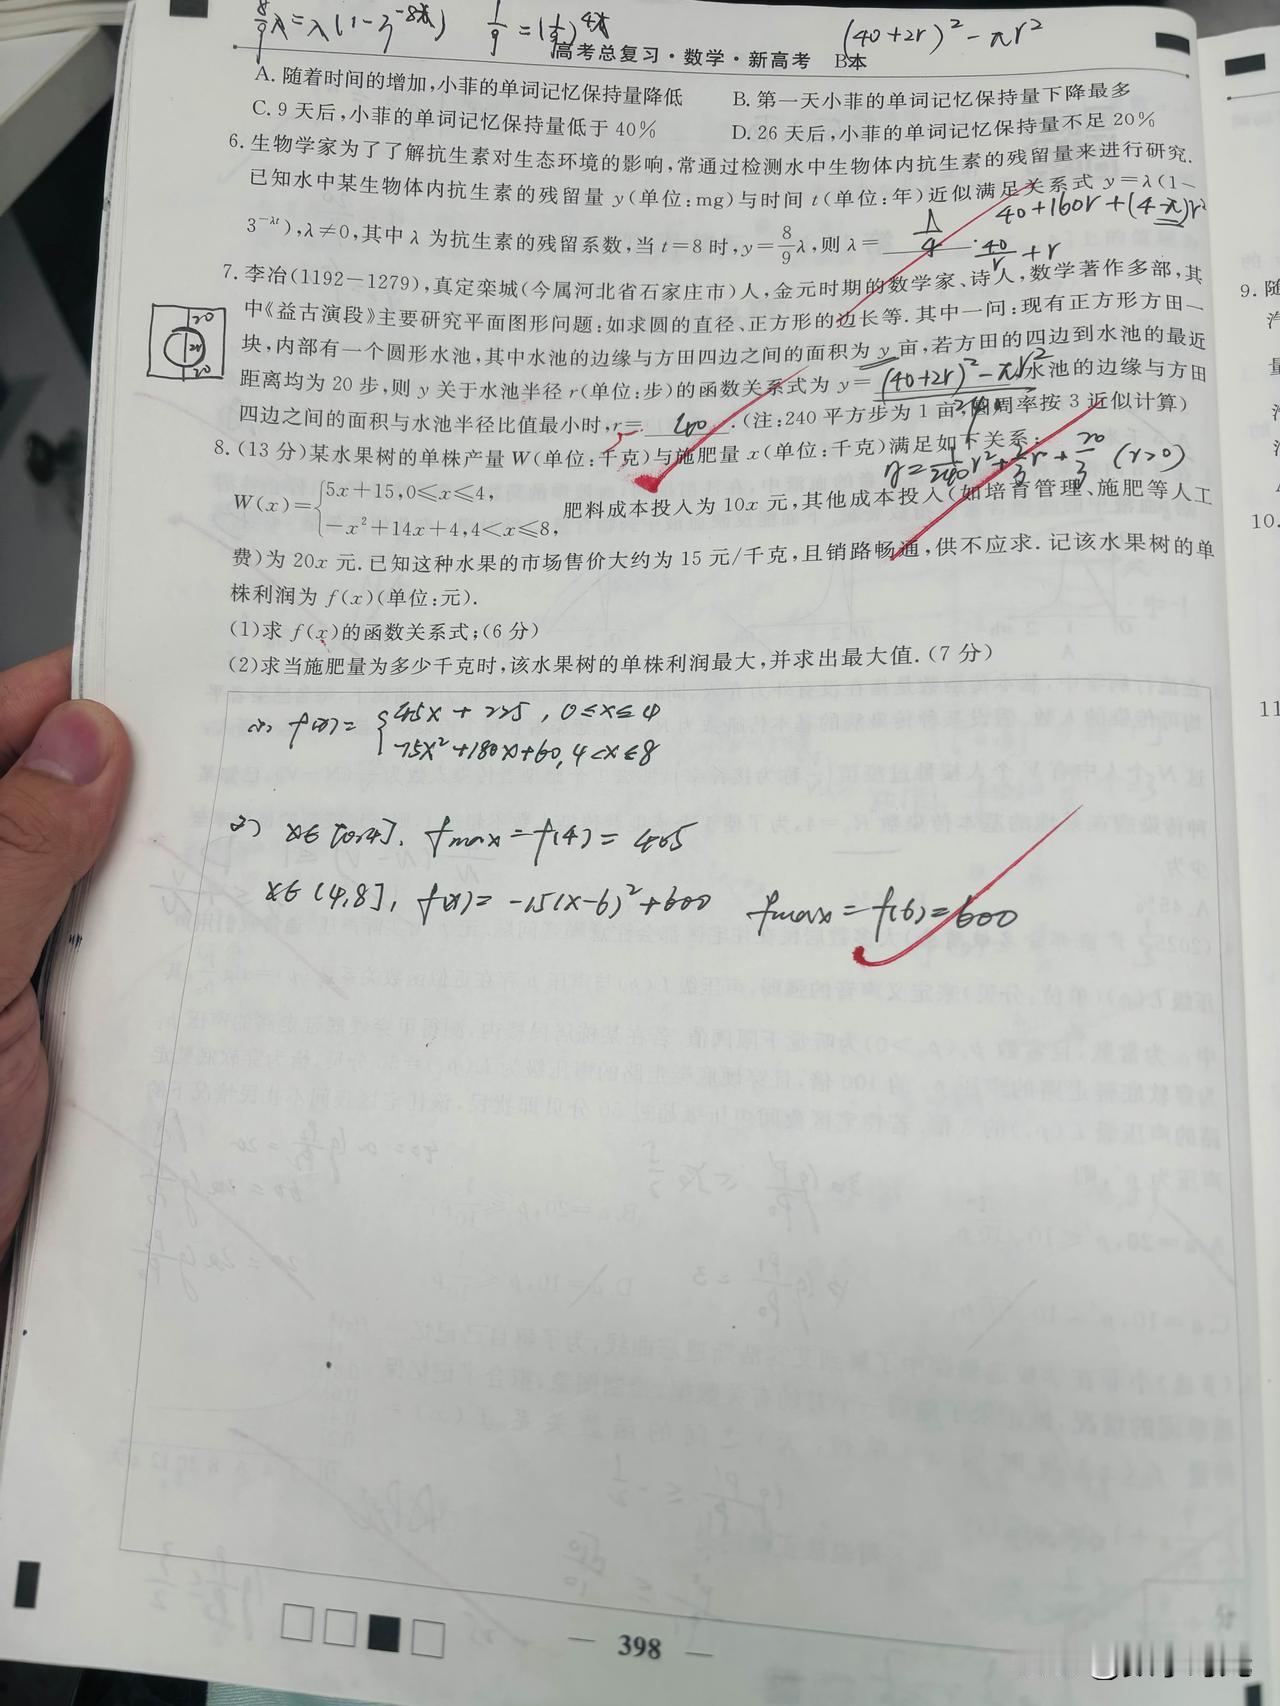 8/9λ=λ(1-3^-8λ) 1/9=(1/3)^4λ (40+2r)²-πr²
高考总复习·数学·新高考 B本
A. 随着时间的增加,小菲的单词记忆保持量降低 B. 第一天小菲的单词记忆保持量下降最多
C. 9 天后,小菲的单词记忆保持量低于 40% D. 26 天后,小菲的单词记忆保持量不足 20%
6. 生物学家为了了解抗生素对生态环境的影响,常通过检测水中生物体内抗生素的残留量来进行研究.
已知水中某生物体内抗生素的残留量 y(单位:mg)与时间 t(单位:年)近似满足关系式 y=λ(1-
40+160r+(4-π)r²
3^-λt),λ≠0,其中 λ 为抗生素的残留系数,当 t=8 时,y=8/9λ,则 λ= 1/4 .
40/r+r
7. 李冶(1192-1279),真定栾城(今属河北省石家庄市)人,金元时期的数学家、诗人,数学著作多部,其
中《益古演段》主要研究平面图形问题:如求圆的直径、正方形的边长等.其中一问:现有正方形方田一
块,内部有一个圆形水池,其中水池的边缘与方田四边之间的面积为 y 亩,若方田的四边到水池的最近
距离均为 20 步,则 y 关于水池半径 r(单位:步)的函数关系式为 y= (40+2r)²-πr² 水池的边缘与方田
四边之间的面积与水池半径比值最小时,r= 40 .(注:240 平方步为 1 亩,圆周率按 3 近似计算)
20
2r
20
8. (13 分)某水果树的单株产量 W(单位:千克)与施肥量 x(单位:千克)满足如下关系:
y=1/240r²+2/3r+20/3 (r>0)
W(x)={5x+15,0≤x≤4,
-x²+14x+4,4<x≤8,
肥料成本投入为 10x 元,其他成本投入(如培育管理、施肥等人工
费)为 20x 元.已知这种水果的市场售价大约为 15 元/千克,且销路畅通,供不应求.记该水果树的单
株利润为 f(x)(单位:元).
(1)求 f(x)的函数关系式;(6 分)
(2)求当施肥量为多少千克时,该水果树的单株利润最大,并求出最大值.(7 分)
(1) f(x)={45x+225,0≤x≤4
-15x²+180x+60,4<x≤8
2) x∈[0,4], fmax=f(4)=405
x∈(4,8], f(x)=-15(x-6)²+600 fmax=f(6)=600
— 398 —
9. 随
10.
11